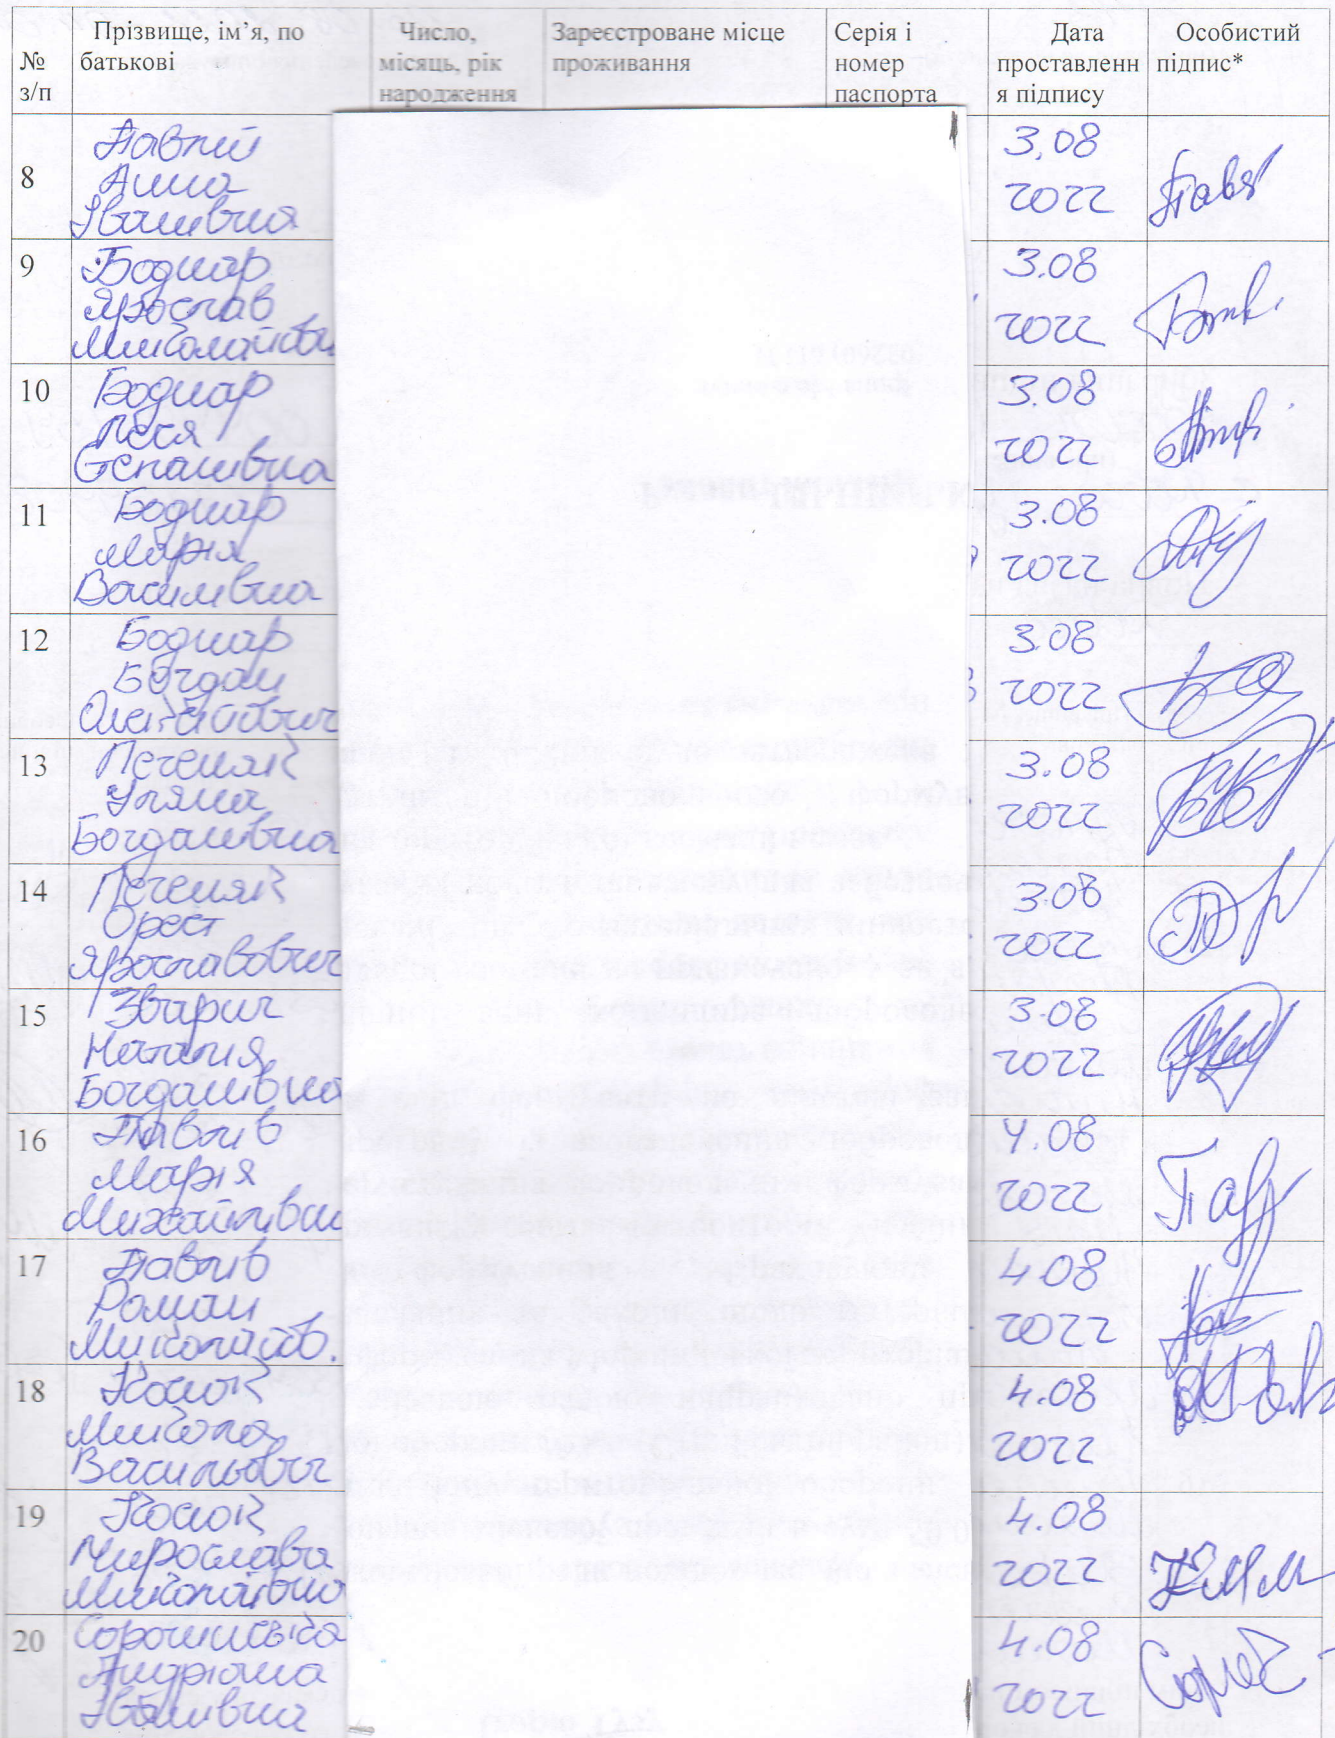 № з/п
Прізвище, ім’я, по батькові
Число, місяць, рік народження
Зареєстроване місце проживання
Серія і номер паспорта
Дата проставленн я підпису
Особистий підпис*
8
Павлій
Анна
Іванівна
3.08
2022
9
Боднар
Ярослав
3.08
2022
10
Боднар
Леся
Степанівна
3.08
2022
11
Боднар
Марія
Василівна
3.08
2022
12
Боднар
Богдан
3.08
2022
13
Печеняк
Уляна
Богданівна
3.08
2022
14
Печеняк
Орест
Ярославович
3.08
2022
15
Зварич
Наталія
Богданівна
3.08
2022
16
Павлів
Марія
4.08
2022
17
Павлів
Роман
4.08
2022
18
Микола
Васильович
4.08
2022
19
Мирослава
Миколаївна
4.08
2022
20
Іванівна
4.08
2022